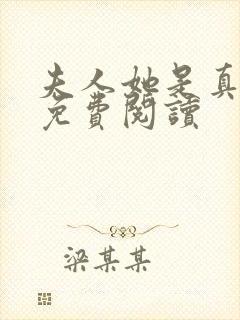 夫人她是真
免費閱讀
梁某某